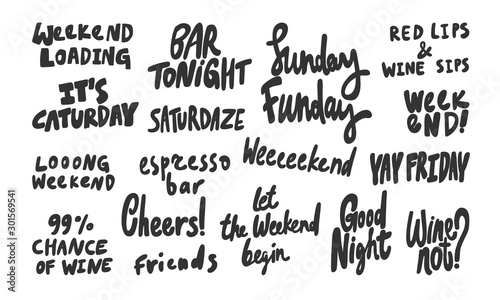 WEEKEND
LOADING
BAR
TONIGHT
Sunday
Funday
RED LIPS
&
WINE SIPS
IT'S
CATURDAY
SATURDAZE
WEEK
END!
LOOONG
WEEKEND
espresso
bar
Weeeeekend
YAY FRIDAY
99%
CHANCE
OF WINE
Cheers!
friends
let
the Weekend
begin
Good
Night
Wine
not?
Adobe Stock | #301569541